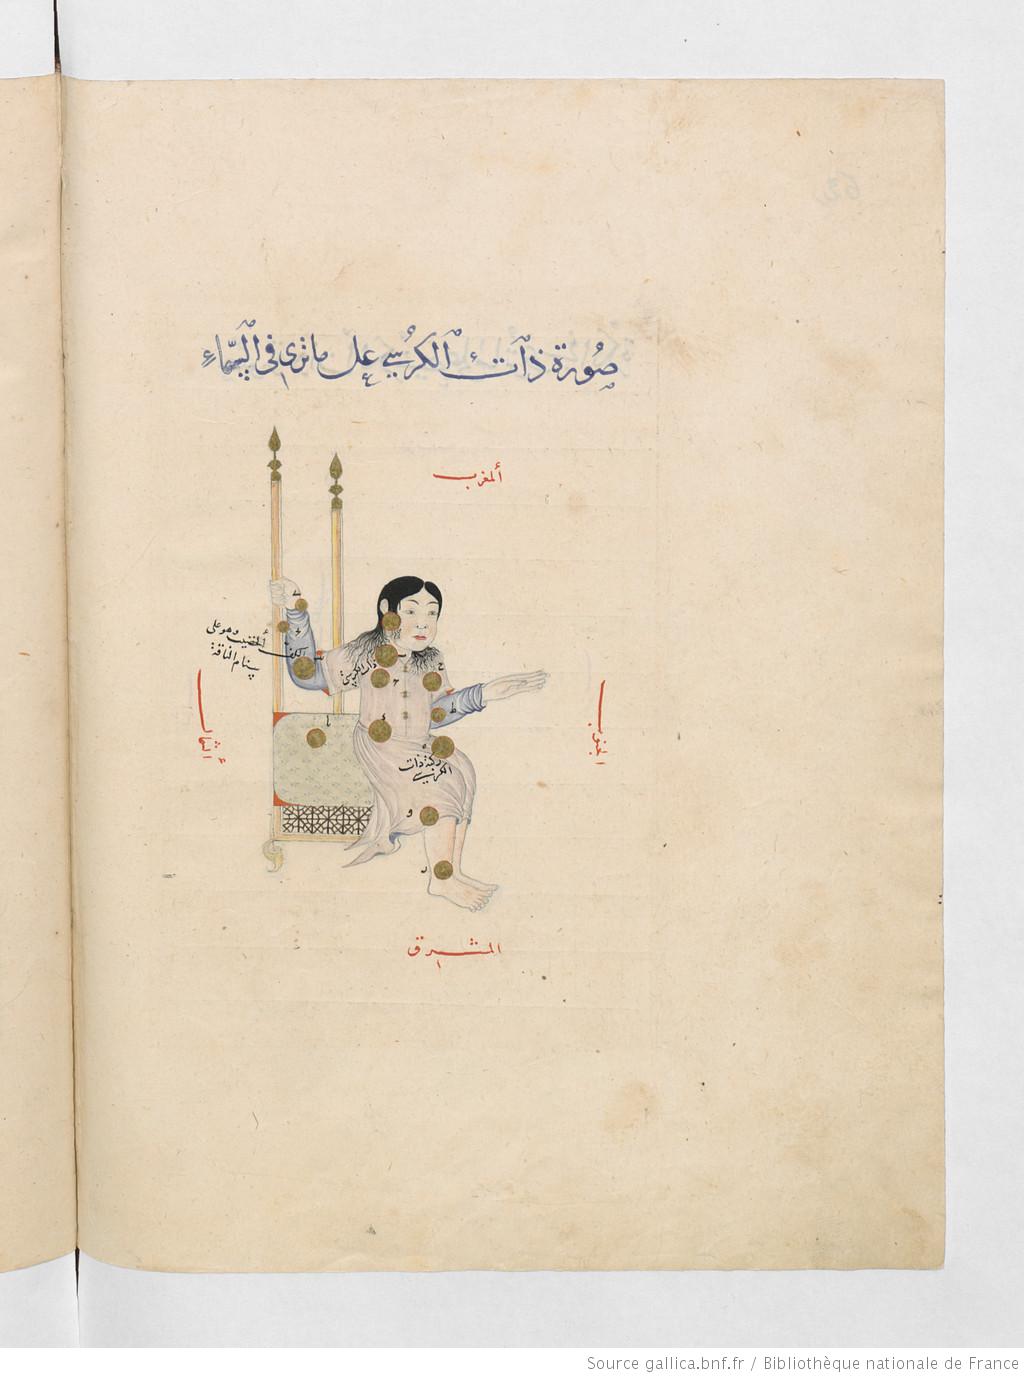 صُورة ذَات الكُرسي على ما ترى في السَّماء
المغرب
الكف الخضيب وهو على
سنام الناقة
ذات الكرسي
الشمال
الجنوب
ركبة ذات
الكرسي
المشرق
Source gallica.bnf.fr / Bibliothèque nationale de France